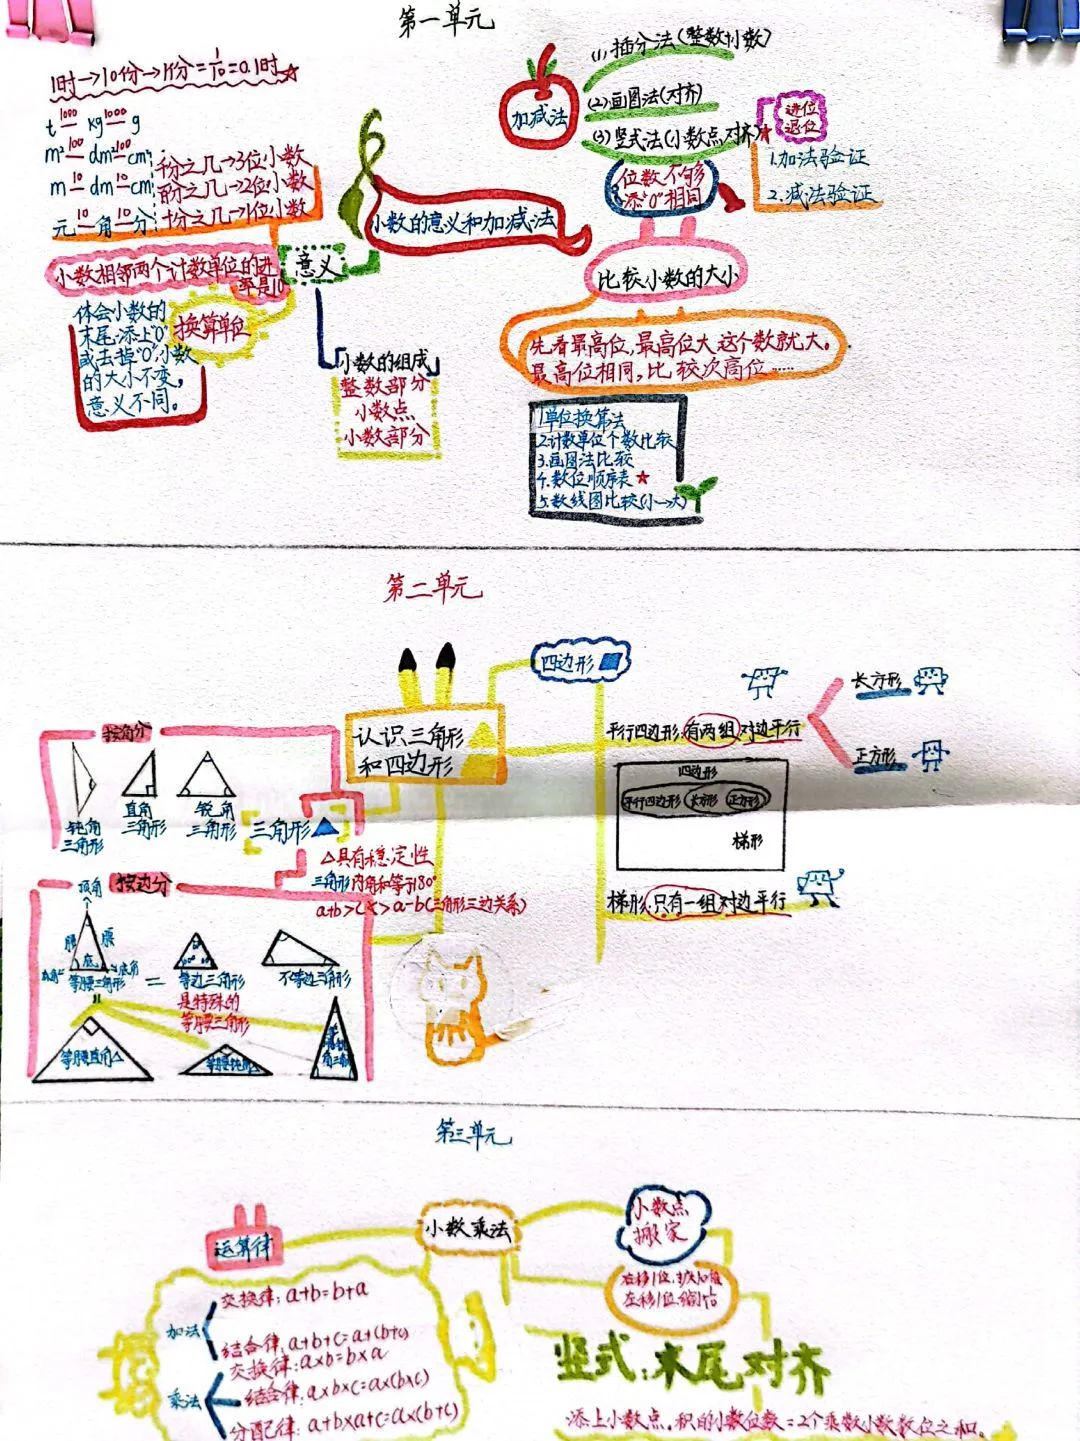 第一单元
1时→10份→1份=1/10=0.1时
t 1000 kg 1000 g
m² 100 dm² 100 cm²
m 10 dm 10 cm
元 10 角 10 分
千分之几→3位小数
百分之几→2位小数
十分之几→1位小数
小数相邻两个计数单位的进
率是10
意义
换算单位
体会小数的
末尾添上"0"
或去掉"0",小数
的大小不变,
意义不同。
小数的组成
整数部分
小数点
小数部分
小数的意义和加减法
加减法
(1)插分法(整数+小数)
(2)画图法(对齐)
(3)竖式法(小数点对齐)
进位
退位
1.加法验证
2.减法验证
位数不够
添"0"相同
比较小数的大小
先看最高位,最高位大这个数就大。
最高位相同,比较次高位……
1单位换算法
2.计数单位个数比较
3.画图法比较
4.数位顺序表
5.数线图比较(小→大)
第二单元
认识三角形
和四边形
四边形
平行四边形:有两组对边平行
长方形
正方形
四边形
平行四边形 长方形 正方形
梯形
梯形:只有一组对边平行
按角分
钝角
三角形
直角
三角形
锐角
三角形
三角形
△具有稳定性
三角形内角和等于180°
a+b>c>a-b(三角形三边关系)
按边分
顶角
腰 腰
底
底角
等腰三角形
=
等边三角形
是特殊的
等腰三角形
不等边三角形
等腰直角△
等腰钝角△
第三单元
小数乘法
运算律
加法
交换律:a+b=b+a
结合律:a+b+c=a+(b+c)
乘法
交换律:a×b=b×a
结合律:a×b×c=a×(b×c)
分配律:a+b×a+c=a×(b+c)
小数点
搬家
右移1位,扩大10倍
左移1位缩小1/10
竖式:末尾对齐
添上小数点,积的小数位数=2个乘数小数数位之和。